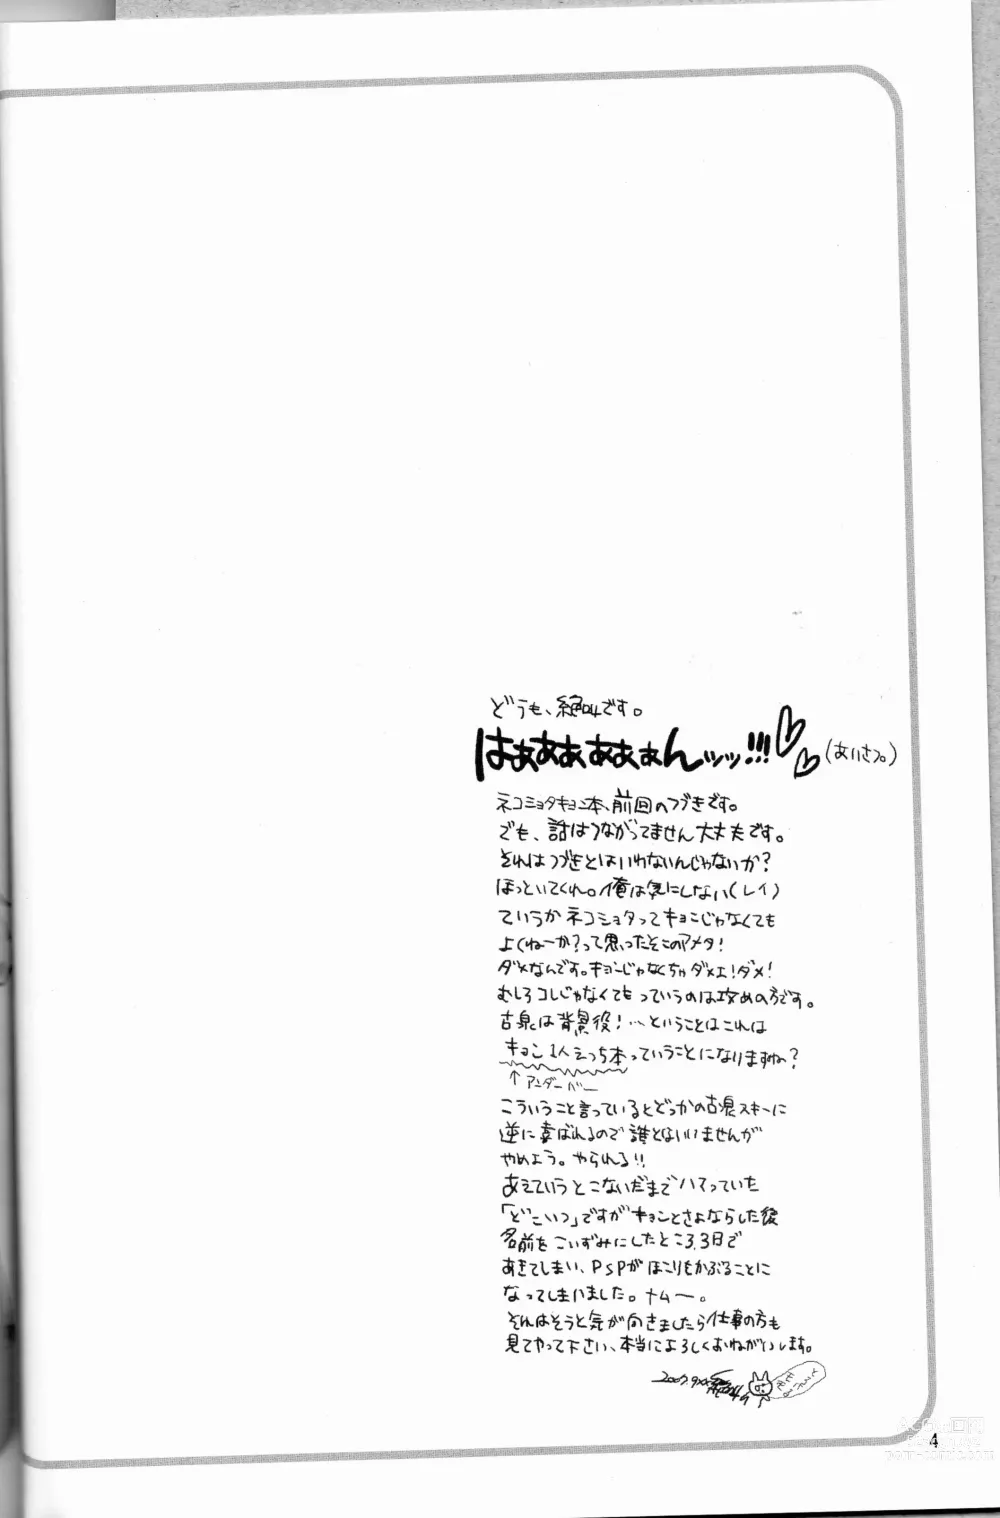 どうも、絶叫です。
はぁあぁあぁぁんッッ!!!
(あいさつ。)
ネコショタキョン本、前回のつづきです。
でも、話はつながってません大丈夫です。
それはつづきとはいわないんじゃないか?
ほっといてくれ。俺は気にしない(レイ)
ていうかネコショタってキョンじゃなくても
よくねーか?って思ったそこのアメタ!
ダメなんです。キョンじゃなくちゃダメェ!ダメ!
むしろコレじゃなくてもっていうのは攻めの方です。
古泉は背景役!…ということはこれは
キョン1人えっち本っていうことになりますね?
↑アンダーバー
こういうこと言っているとどっかの古泉スキーに
逆に喜ばれるので誰とはいいませんが
やめよう。やられる!!
あえていうとこないだまでハマっていた
「どこいつ」ですがキョンとさよならした後
名前をこいずみにしたところ3日で
あきてしまい、PSPがほこりをかぶることに
なってしまいました。ナムー。
それはそうと気が向きましたら仕事の方も
見てやって下さい、本当によろしくおねがいします。
2007.9
4